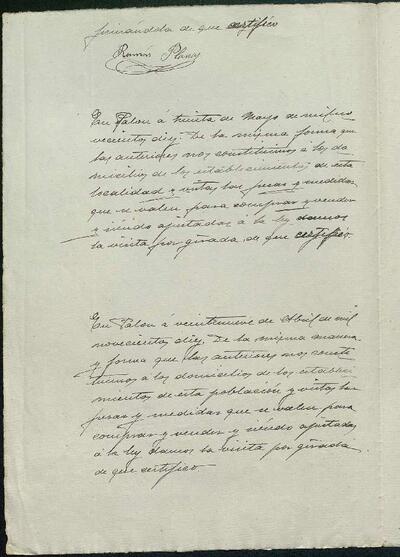 firmándola de que certifico
Ramón Planas
En Palou á treinta de Mayo de mil no
vecientos diez. De la misma forma que
las anteriores nos constituimos á los do
micilios de los establecimientos de esta
localidad y vistas las pesas y medidas
que se valen para comprar y vender
y siendo ajustadas á la ley damos
la visita por girada de que certifico.
En Palou á veintenueve de Abril de mil
novecientos diez. De la misma manera
y forma que las anteriores nos consti
tuimos á los domicilios de los estableci
mientos de esta población y vistas las
pesas y medidas que se valen para
comprar y vender y siendo ajustadas
á la ley damos la visita por girada
de que certifico